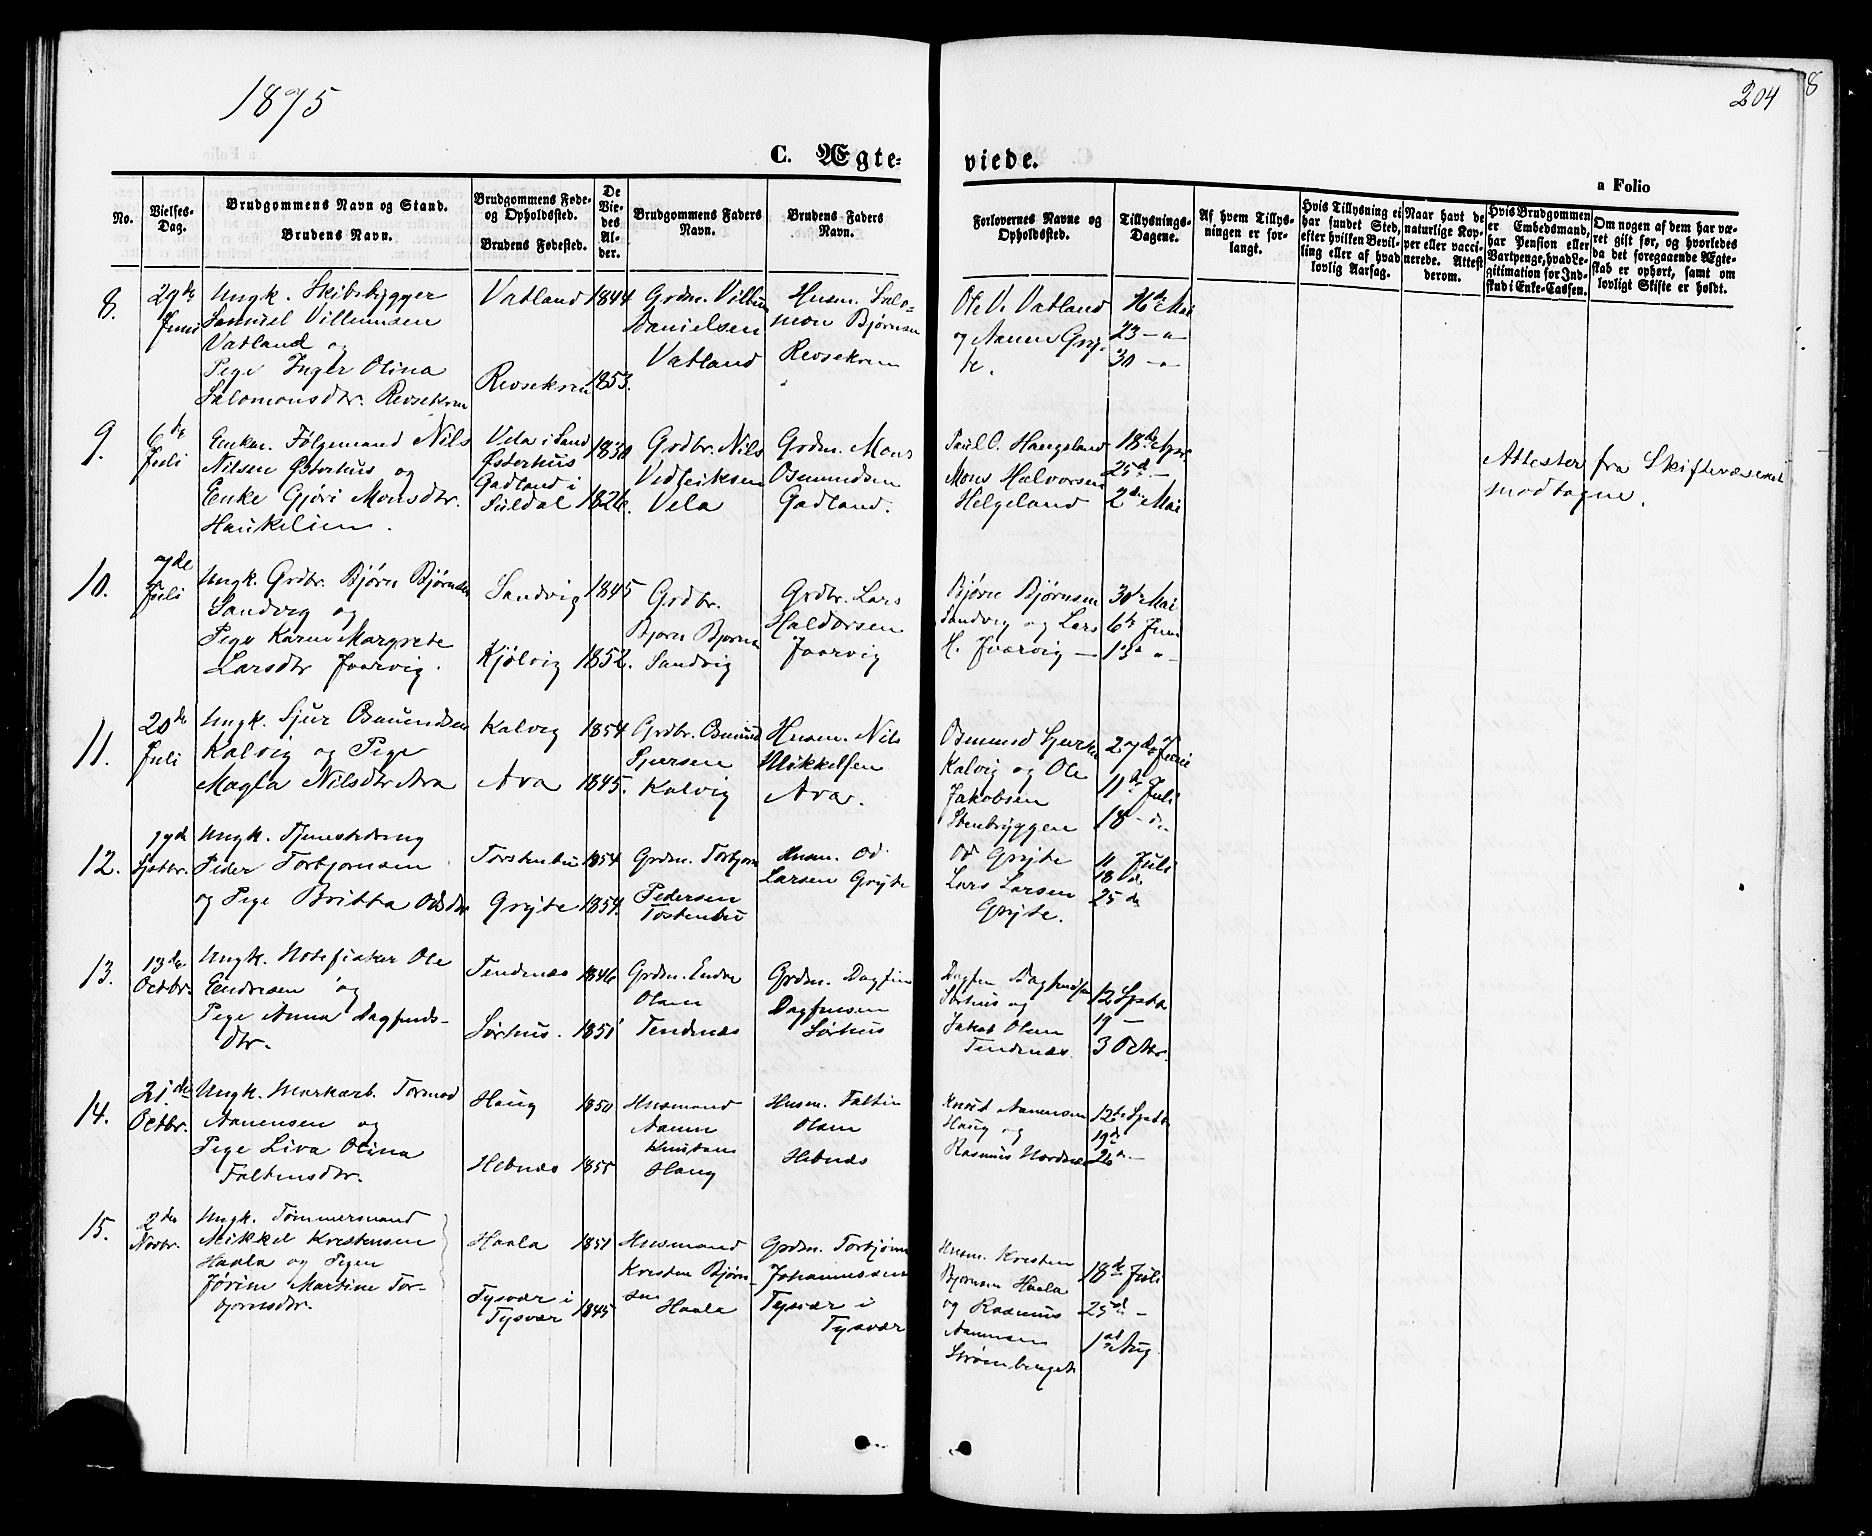 1875
204
8
C. Ægte-
viede.
a Folio
No.
Vielses-
Dag.
Brudgommens Navn og Stand.
Brudens Navn.
Brudgommens Føde-
og Opholdssted.
Brudens Fødested.
De
Vie-
des
Al-
der.
Brudgommens Faders
Navn.
Brudens Faders
Navn.
Forlovernes Navne og
Opholdssted.
Tillysnings-
Dagene.
Af hvem Tillys-
ningen er for-
langt.
Hvis Tillysning ei
har fundet Sted,
efter hvilken Bevil-
ling eller af hvad
lovlig Aarsag.
Naar havt de
naturlige Kop-
per eller vacci-
nerede. Attest
derom.
Hvis Brudgommen
er Embedsmand,
har Pension eller
Vartpenge, hvad Le-
gitimation for Ind-
skud i Enke-Cassen.
Om nogen af dem har væ-
ret gift før, og hvorledes
da det foregaaende Ægte-
skab er ophørt, samt om
lovligt Skifte er holdt.
8.
29de
Juni
Ungk. Skibsbygger
Samuel Villumsen
Vatland og
Pige Inger Olina
Salomonsdtr. Revsekren
Vatland
Revsekren
1844
1853.
Grdm. Villum
Danielsen
Vatland
Husm. Salo-
mon Bjørnsen
Revsekren
Ole V. Vatland
og Aanen Grij-
te.
16de Mai
23 — "
30 — "
9.
6de
Juli
Enkem. Følgemand Nils
Nilsen Østerhus og
Enke Gjøri Monsdtr.
Haukelien.
Vela i Sand
Østerhus
Gadland i
Suldal
1830
1826.
Grdbr. Nils
Vela
Grdm. Mons
Osmundsen
Gadland.
Poul O. Haugeland
Mons Halvorsen
Helgeland
18de Apr.
25d —
2de Mai
Attester fra Skiftevæsenet
modtagne.
10.
7de
Juli
Ungk. Grdbr. Bjørn Bjørnsen
Sandvig og
Pige Karen Margrete
Larsdtr Joarvig.
Sandvig
Kjølvig
1845
1852.
Grdbr.
Bjørn Bjørnsen
Sandvig
Grdbr. Lars
Haldorsen
Joarvig
Bjørn Bjørnsen
Sandvig og Lars
H. Joarvig —
30te Mai
6te Juni
13 " —
11.
20de
Juli
Ungk. Sjur Osmundsen
Kalvig og Pige
Magla Nilsdtr Ara
Kalvig
Ara
1854
1845.
Grdbr. Osmund
Sjursen
Kalvig
Husm. Nils
Mikkelsen
Ara.
Osmund Sjursen
Kalvig og Ole
Jakobsen
Stenbryggen
27de Juni
11te Juli
18 — d.
12.
17d
Septbr.
Ungk. Tjenestedreng
Peder Torbjørnsen
og Pige Britta Odsdtr
Torstenbu
Grijte
1854
1854.
Grdm. Torbjørn
Pedersen
Tostenbu
Husm. Od
Larsen Grijte
Od Grijte
Lars Larsen
Grijte.
11 Juli
18 d.
25 d.
13.
13de
Octbr.
Ungk. Notfisker Ole
Endresen og
Pige Anna Dagfinds-
dtr.
Tendenæs
Sørhus.
1846
1851
Grdm. Endre
Olsen
Tendenæs
Grdm. Dagfin
Dagfinsen
Sørhus
Dagfin Dagfindsen
Sørhus og
Jakob Olsen
Tendenæs.
12 Septbr
19 —
3 Octbr.
14.
21.de
Octbr.
Ungk. Markarb. Tormod
Aanensen og
Pige Liva Olina
Faltinsdtr.
Haug
Hebnæs
1850
1855
Husmand
Aanen
Knutsen
Haug
Husm. Faltin
Olsen
Hebnæs
Knud Aanensen
Haug og
Rasmus Nordnæs
12te Septbr
19d
26 " —
15.
2den
Novbr.
Ungk. Tømmermand
Mikkel Kristensen
Haala og Pigen
Jørine Martine Tor-
bjørnsdtr.
Haala
Tysvær i
Tysvær
1851
1845
Husmand
Kristen Bjørn-
sen Haala
Grdm. Torbjørn
Johannessen
Tysvær i
Tysvær
Husm. Kristen
Bjørnsen Haala
og Rasmus
Aanensen
Strømberget
18de Juli
25d. —
1st Aug.